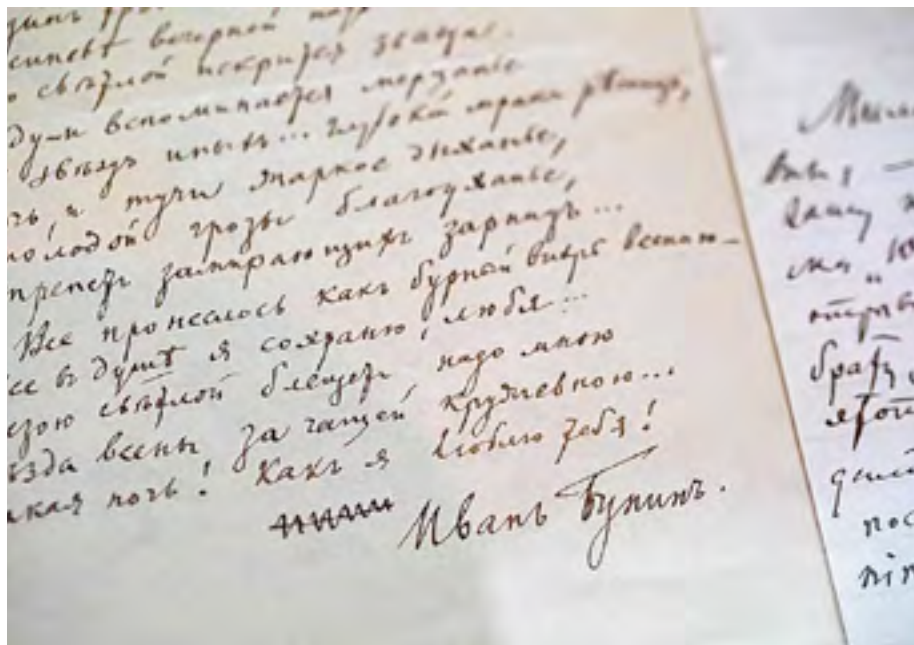 синевѣ вечерной
свѣтлой искрится
вспоминается мерцанье
звѣздъ иныхъ... глубокій мракъ рѣсницъ,
чь, и тучи жаркое дыханье,
молодой грозы благоуханье,
трепетъ замирающихъ зарницъ...
Все пронеслось какъ бурный вихрь весною —
се въ душѣ я сохраню, любя...
езою свѣтлой блещетъ надо мною
ѣзда весны за чащей кружевною...
акая ночь! Какъ я люблю тебя!
Иванъ Бунинъ.
Вашу
отправ
брату
пос